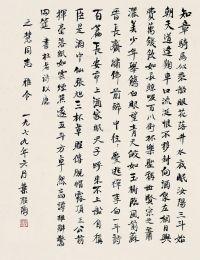 知章騎馬似乘船眼花落井水底眠汝陽三斗始
朝天道逢麴車口流涎恨不移封向酒泉左相日興
費萬錢飲如長鯨吸百川銜杯樂聖稱世賢宗之蕭
灑美少年舉觴白眼望青天皎如玉樹臨風前蘇
晉長齋繡佛前醉中往往愛逃禪李白一斗詩
百篇長安市上酒家眠天子呼來不上船自稱
臣是酒中仙張旭三杯草聖傳脫帽露頂王公前
揮毫落紙如雲煙焦遂五斗方卓然高談雄辯驚
四筵 書杜老詩以應
同志 雅命
一九七九年六月